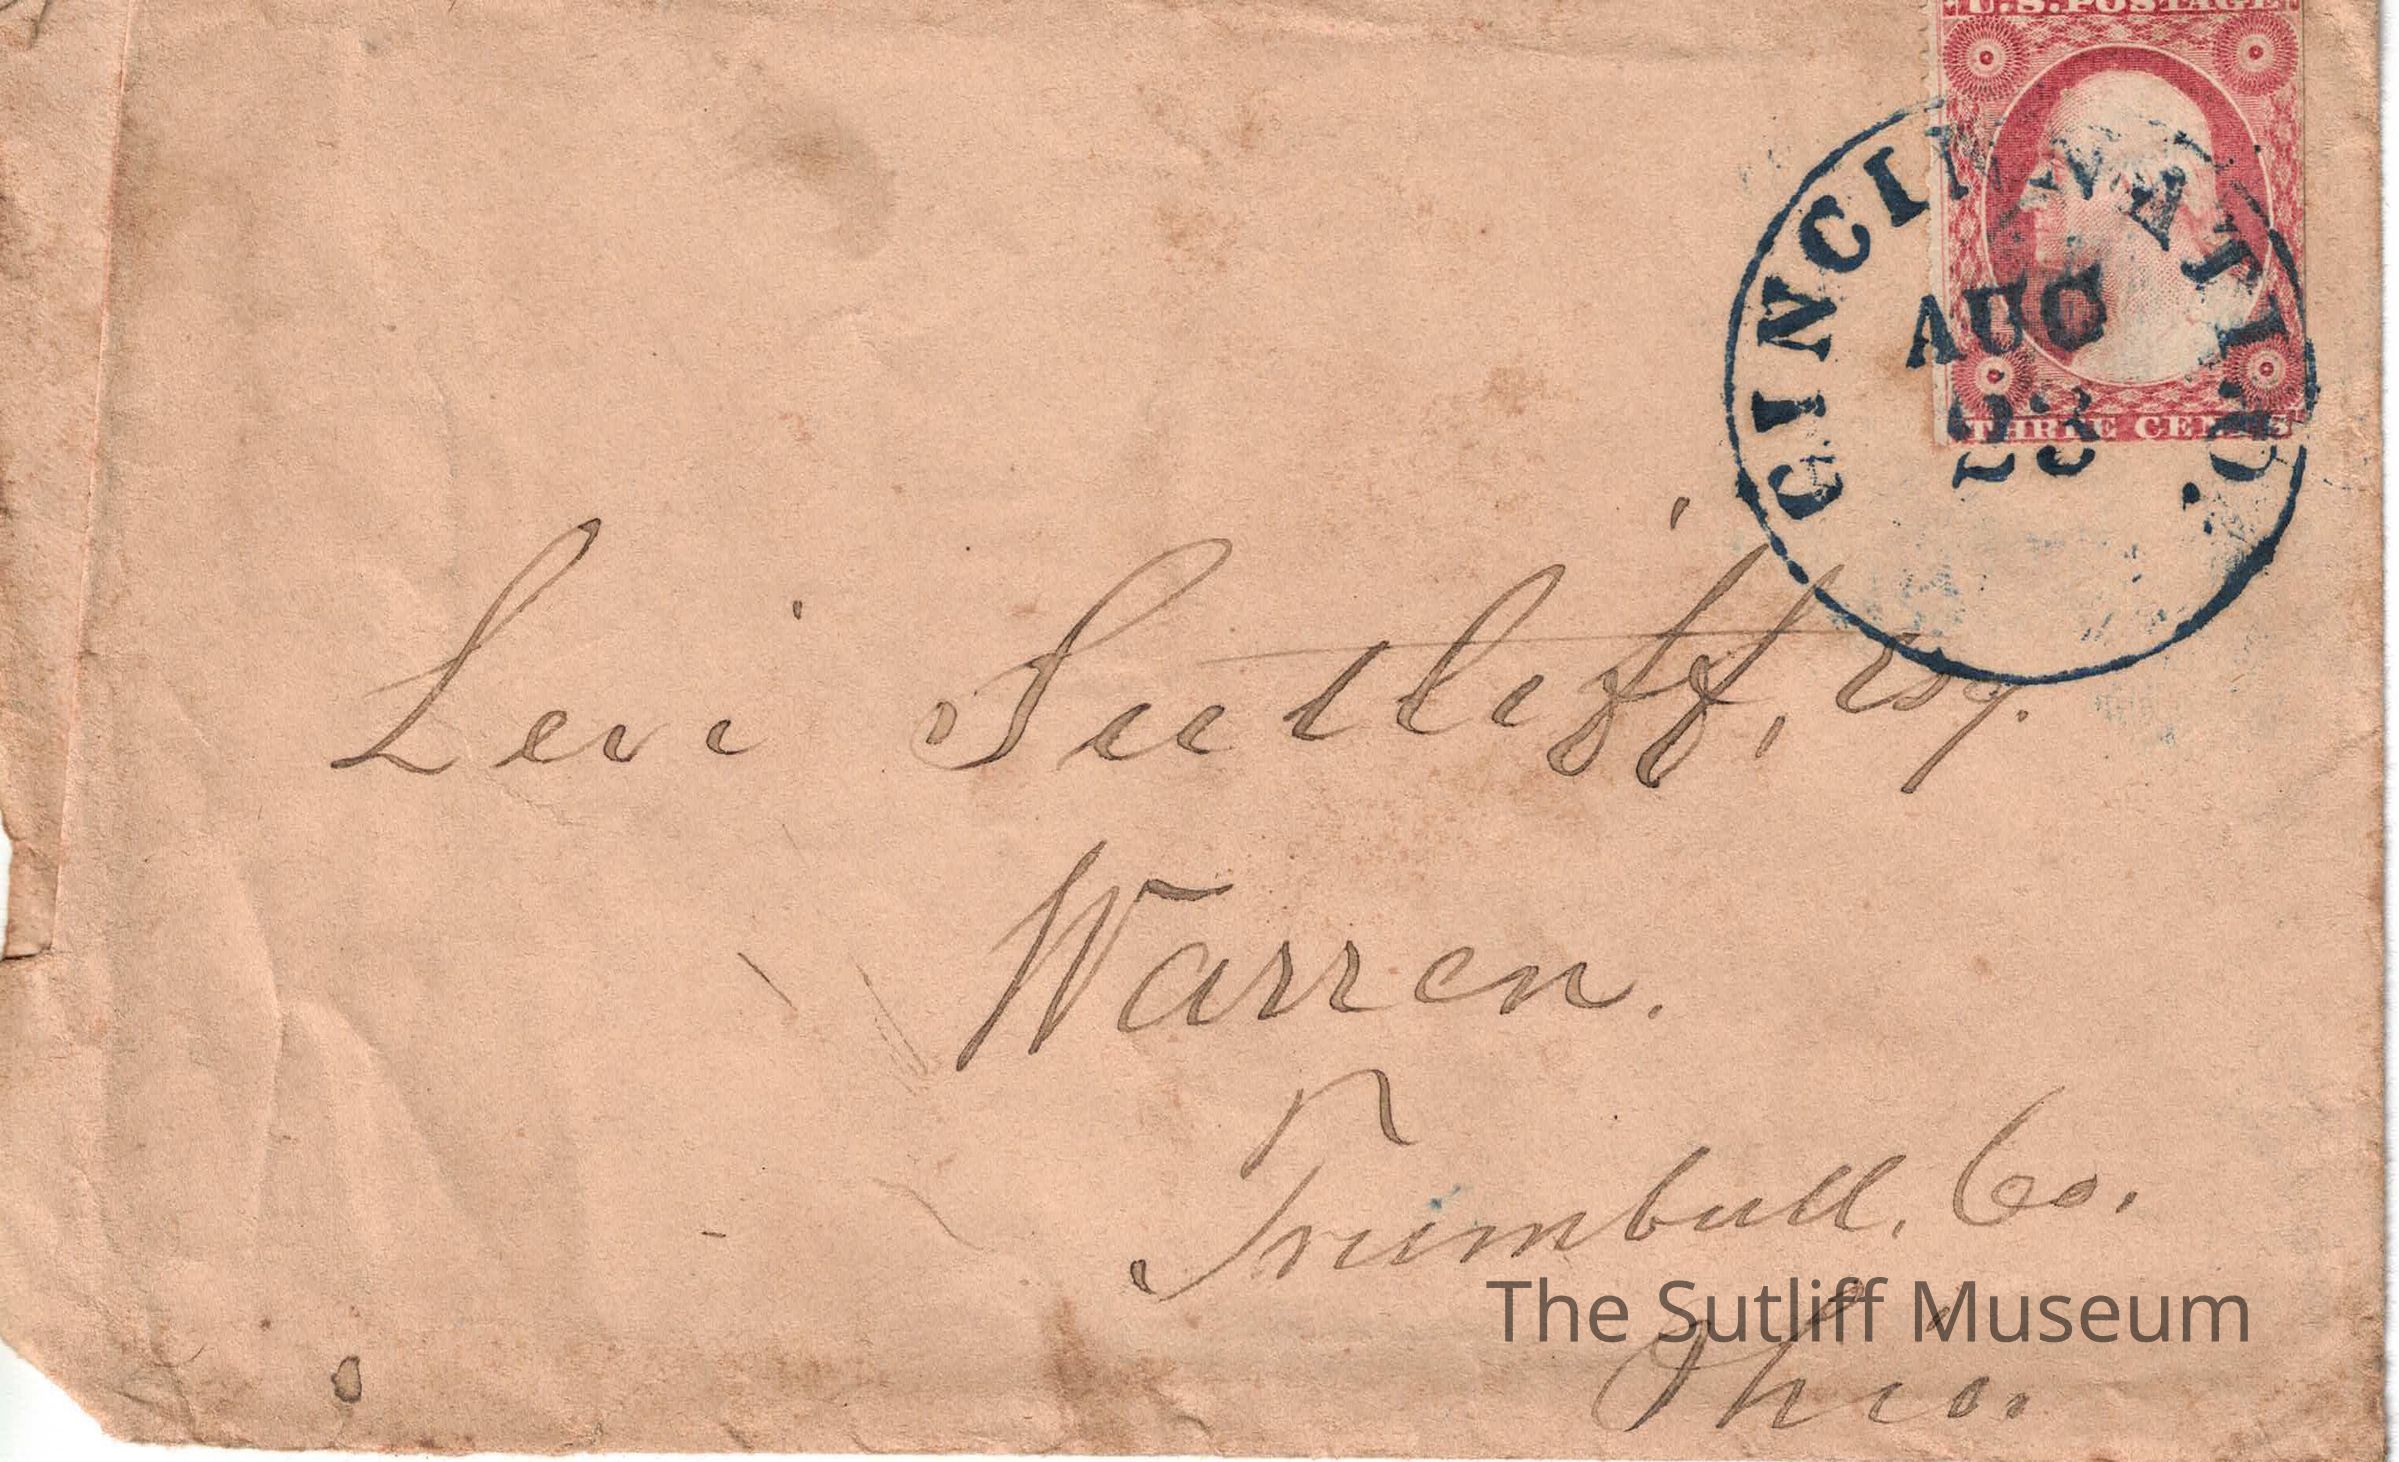 U.S. POSTAGE
CINCINNATI. O.
AUG
23
THREE CENTS
Levi Sutliff, Esq.
Warren.
Trumbull. Co.
The Sutliff Museum
Ohio.